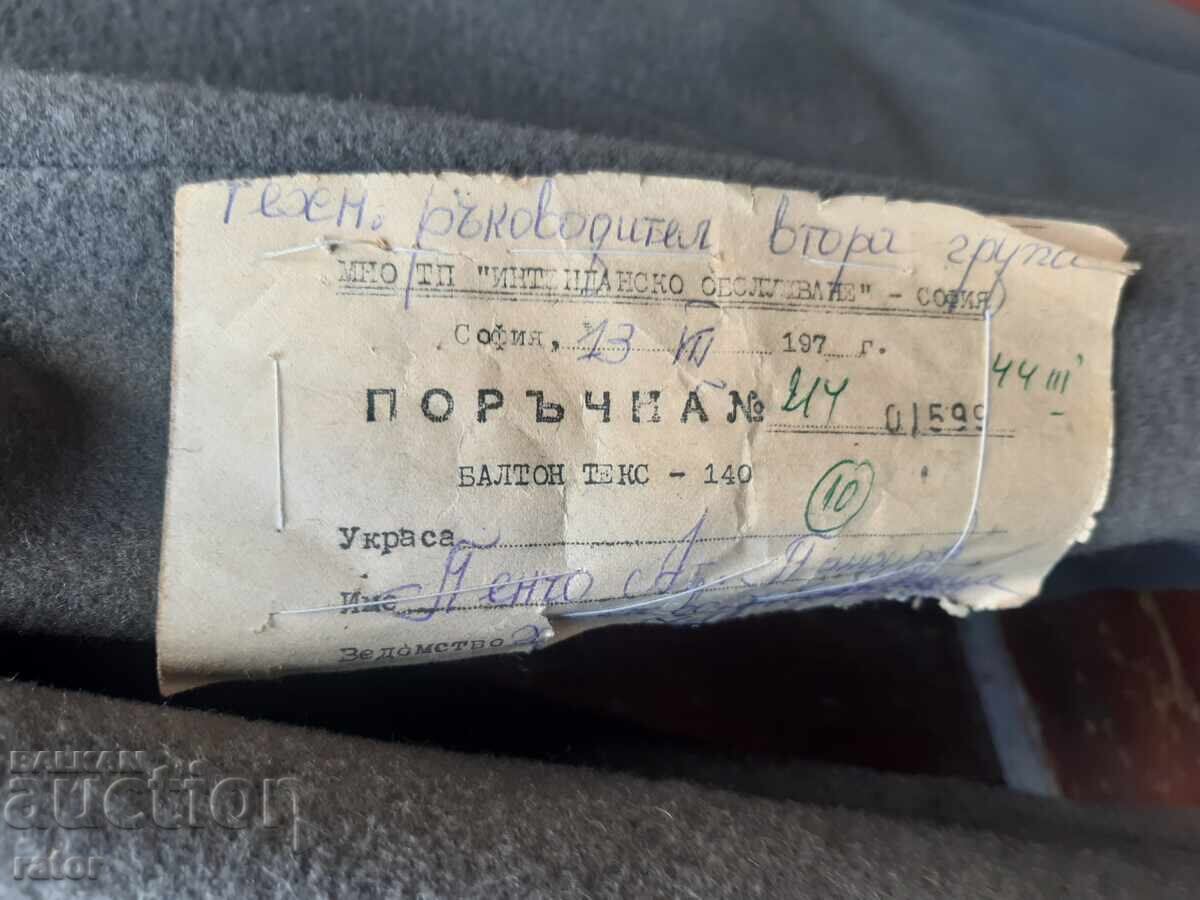 Техн. ръководител втора група
МНО ТП "ИНТЕНДАНСКО ОБСЛУЖВАНЕ" - СОФИЯ
София, 13 III 197 г.
44 III
ПОРЪЧКА № 214 01599
БАЛТОН ТЕКС - 140
10
Украса
Име Пенчо
Ведомство
BALKAN
auction
rator